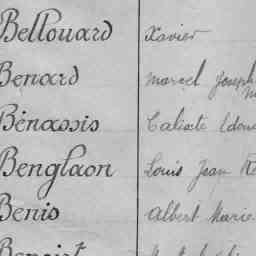 Bellouard Xavier
Benard Marcel Joseph
Bénassis Calixte
Benglaon Louis Jean
Benis Albert Marie
Benoist